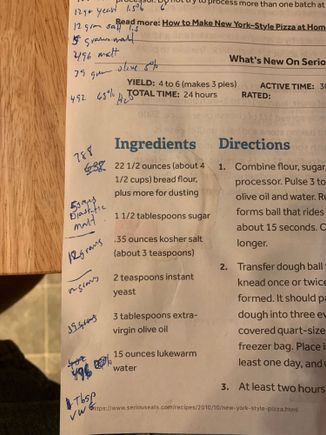 process more than one batch at
12 gr yeast 1.5%
12 gram salt 1.5
Read more: How to Make New York-Style Pizza at Hom
5 grams malt
496 malt
What's New On Serio
39 gram olive 5%
YIELD: 4 to 6 (makes 3 pies)
ACTIVE TIME: 3
TOTAL TIME: 24 hours
RATED:
492 63% H2O
Ingredients
Directions
788
22 1/2 ounces (about 4
1/2 cups) bread flour,
plus more for dusting
1 1/2 tablespoons sugar
5 grams
Diastatic
malt
.35 ounces kosher salt
(about 3 teaspoons)
12 grams
2 teaspoons instant
yeast
12 grams
3 tablespoons extra-
virgin olive oil
39 grams
15 ounces lukewarm
water
496
1 Tbsp
VWG
1. Combine flour, sugar,
processor. Pulse 3 to
olive oil and water. Ru
forms ball that rides
about 15 seconds. C
longer.
2. Transfer dough ball
knead once or twice
formed. It should pa
dough into three ev
covered quart-size
freezer bag. Place i
least one day, and u
3. At least two hours
https://www.seriouseats.com/recipes/2010/10/new-york-style-pizza.html